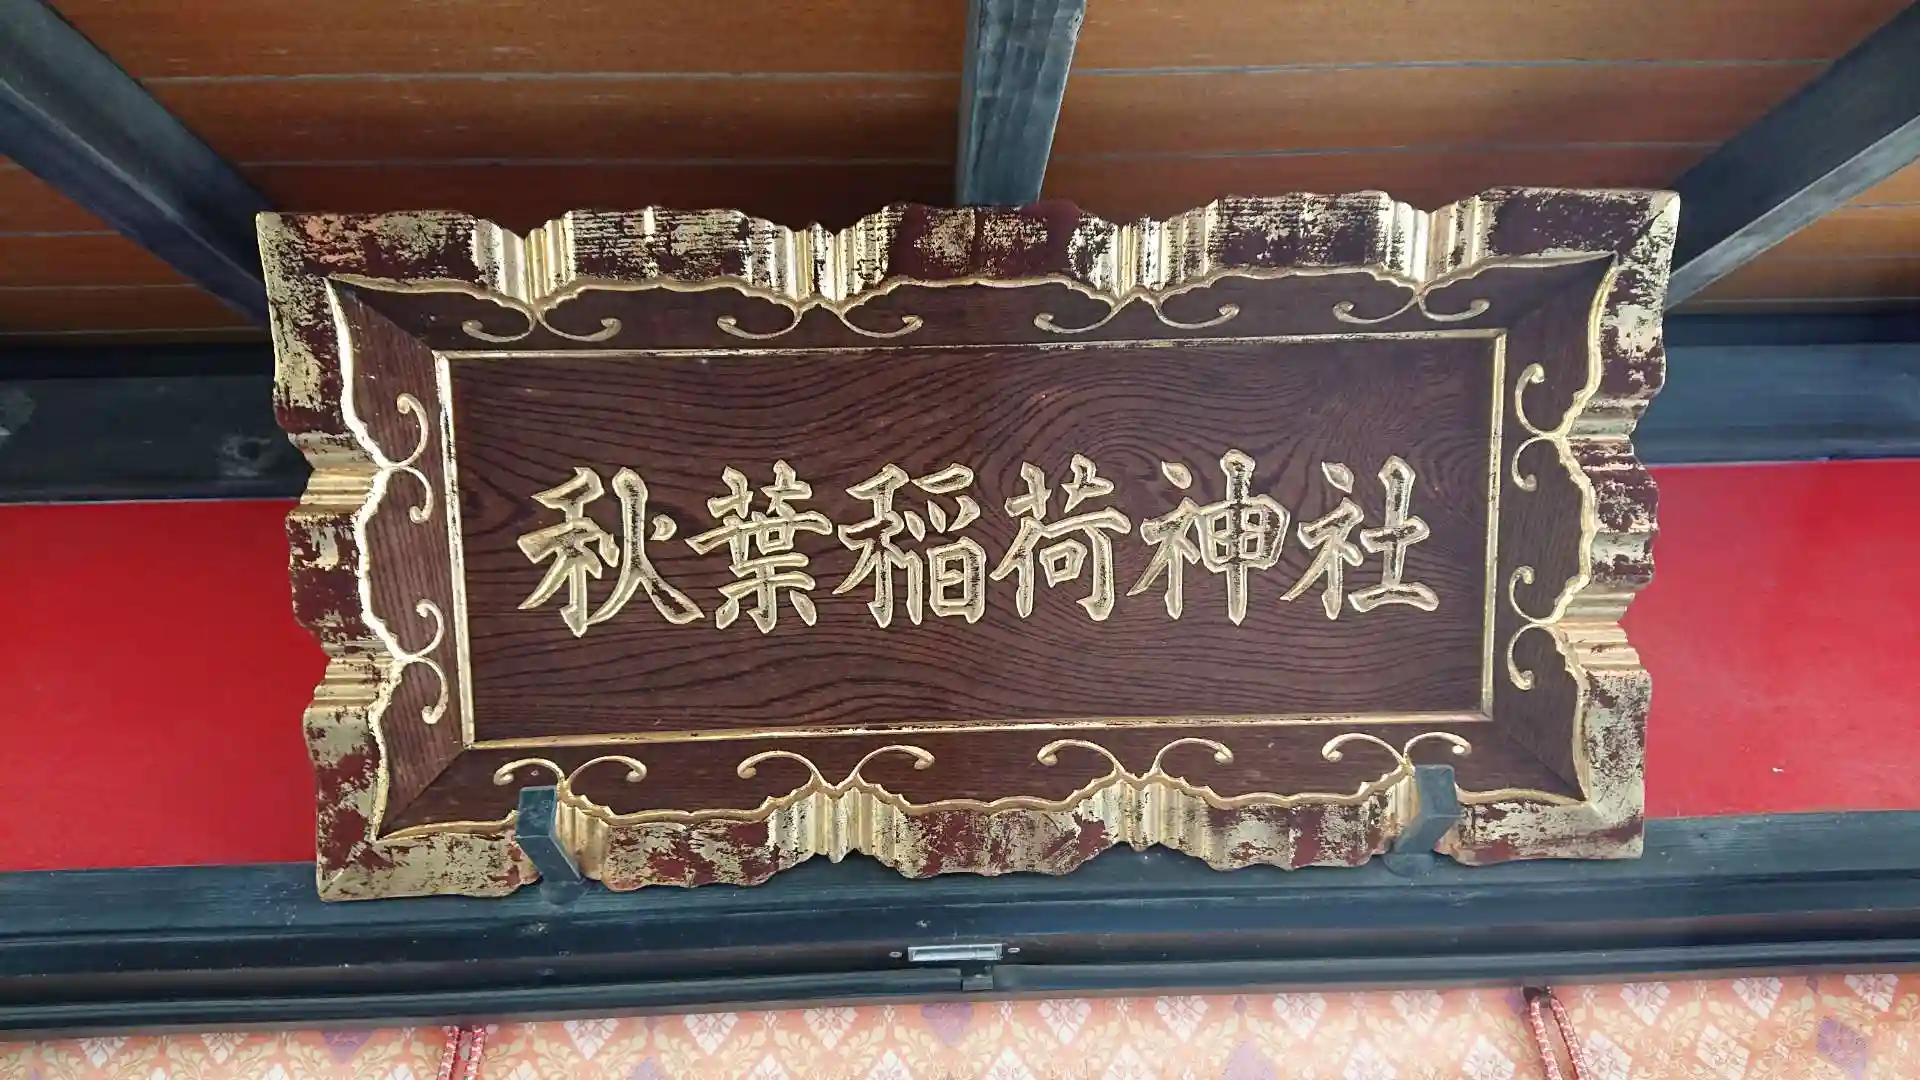 秋葉稲荷神社